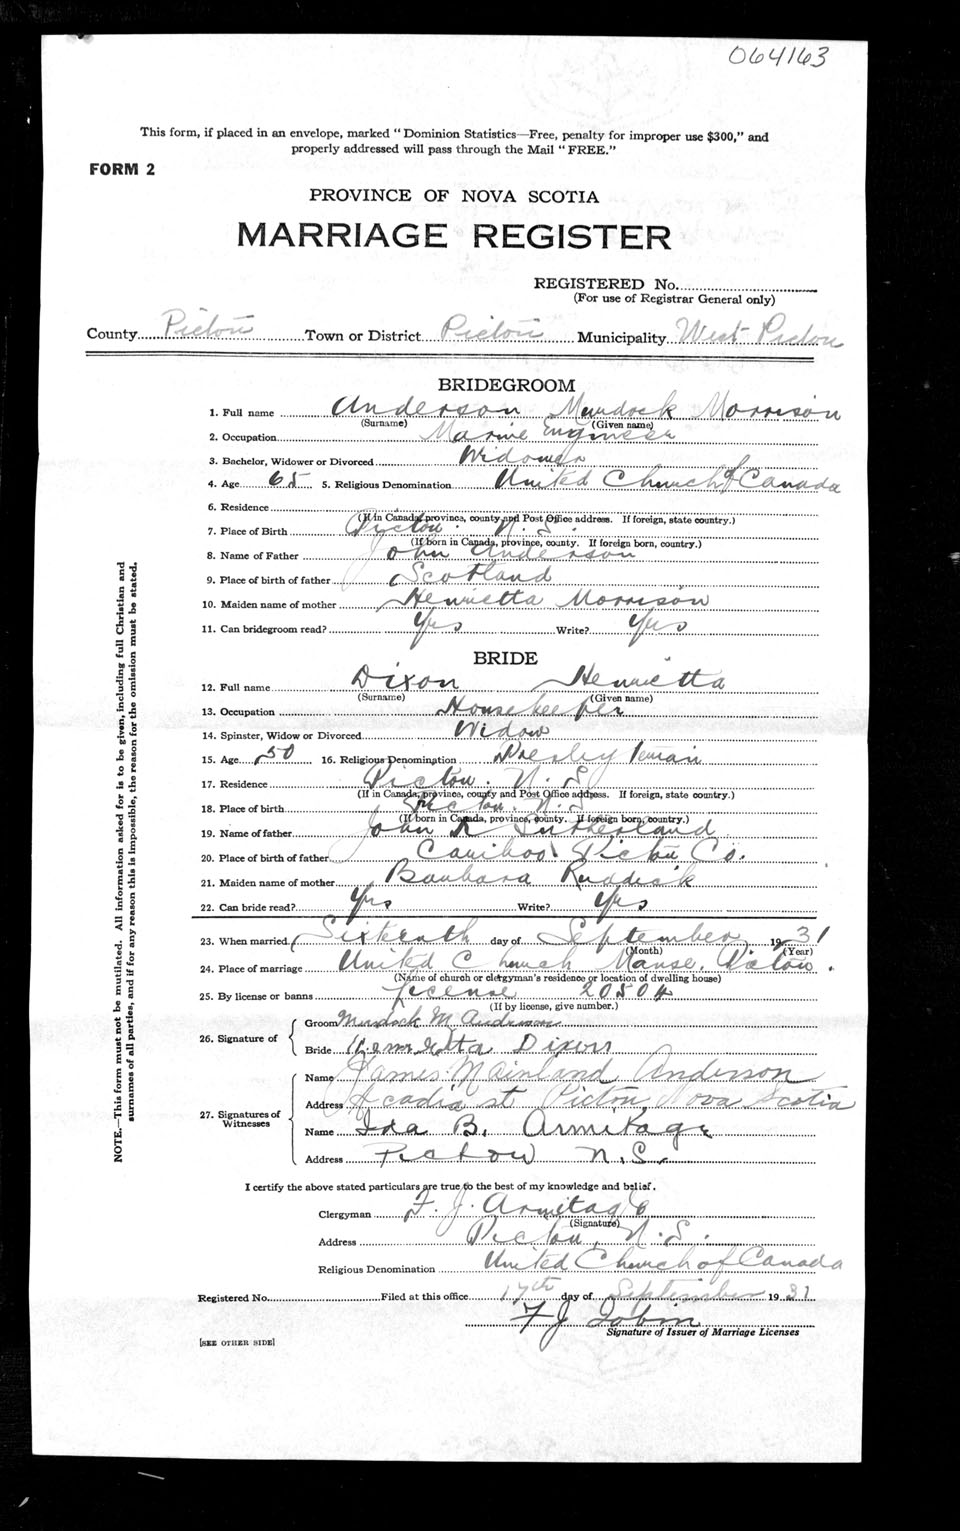 064163
This form, if placed in an envelope, marked "Dominion Statistics—Free, penalty for improper use $300," and
properly addressed will pass through the Mail "FREE."
FORM 2
PROVINCE OF NOVA SCOTIA
MARRIAGE REGISTER
REGISTERED No.
(For use of Registrar General only)
County Pictou Town or District Pictou Municipality West Pictou
BRIDEGROOM
1. Full name Anderson Murdock Morrison
(Surname) (Given name)
2. Occupation Marine Engineer
3. Bachelor, Widower or Divorced Widower
4. Age 65 5. Religious Denomination United Church of Canada
6. Residence
(If in Canada, province, county and Post Office address. If foreign, state country.)
7. Place of Birth Pictou. N. S.
(If born in Canada, province, county. If foreign born, country.)
8. Name of Father John Anderson
9. Place of birth of father Scotland
10. Maiden name of mother Henrietta Morrison
11. Can bridegroom read? Yes Write? Yes
BRIDE
12. Full name Dixon Henrietta
(Surname) (Given name)
13. Occupation Housekeeper
14. Spinster, Widow or Divorced Widow
15. Age 50 16. Religious Denomination Presbyterian
17. Residence Pictou. N. S
(If in Canada, province, county and Post Office address. If foreign, state country.)
18. Place of birth Pictou. N. S
(If born in Canada, province, county. If foreign born, country.)
19. Name of father John R Sutherland
20. Place of birth of father Cariboo Pictou Co.
21. Maiden name of mother Barbara Ruddick
22. Can bride read? Yes Write? Yes
23. When married Sixteenth day of September 1931
(Month) (Year)
24. Place of marriage United Church Manse, Pictou.
(Name of church or clergyman's residence or location of dwelling house)
25. By license or banns License 20504
(If by license, give number.)
26. Signature of
Groom Murdock M Anderson
Bride Henrietta Dixon
27. Signatures of Witnesses
Name James Mainland Anderson
Address Acadia st Pictou, Nova Scotia
Name Ida B. Armitage
Address Pictou N.S.
I certify the above stated particulars are true to the best of my knowledge and belief.
Clergyman F. J. Armitage
(Signature)
Address Pictou, N. S.
Religious Denomination United Church of Canada
Registered No. Filed at this office 17th day of September 1931
F J Tobin
Signature of Issuer of Marriage Licenses
[SEE OTHER SIDE]
NOTE.—This form must not be mutilated. All information asked for is to be given, including full Christian and
surnames of all parties, and if for any reason this is impossible, the reason for the omission must be stated.